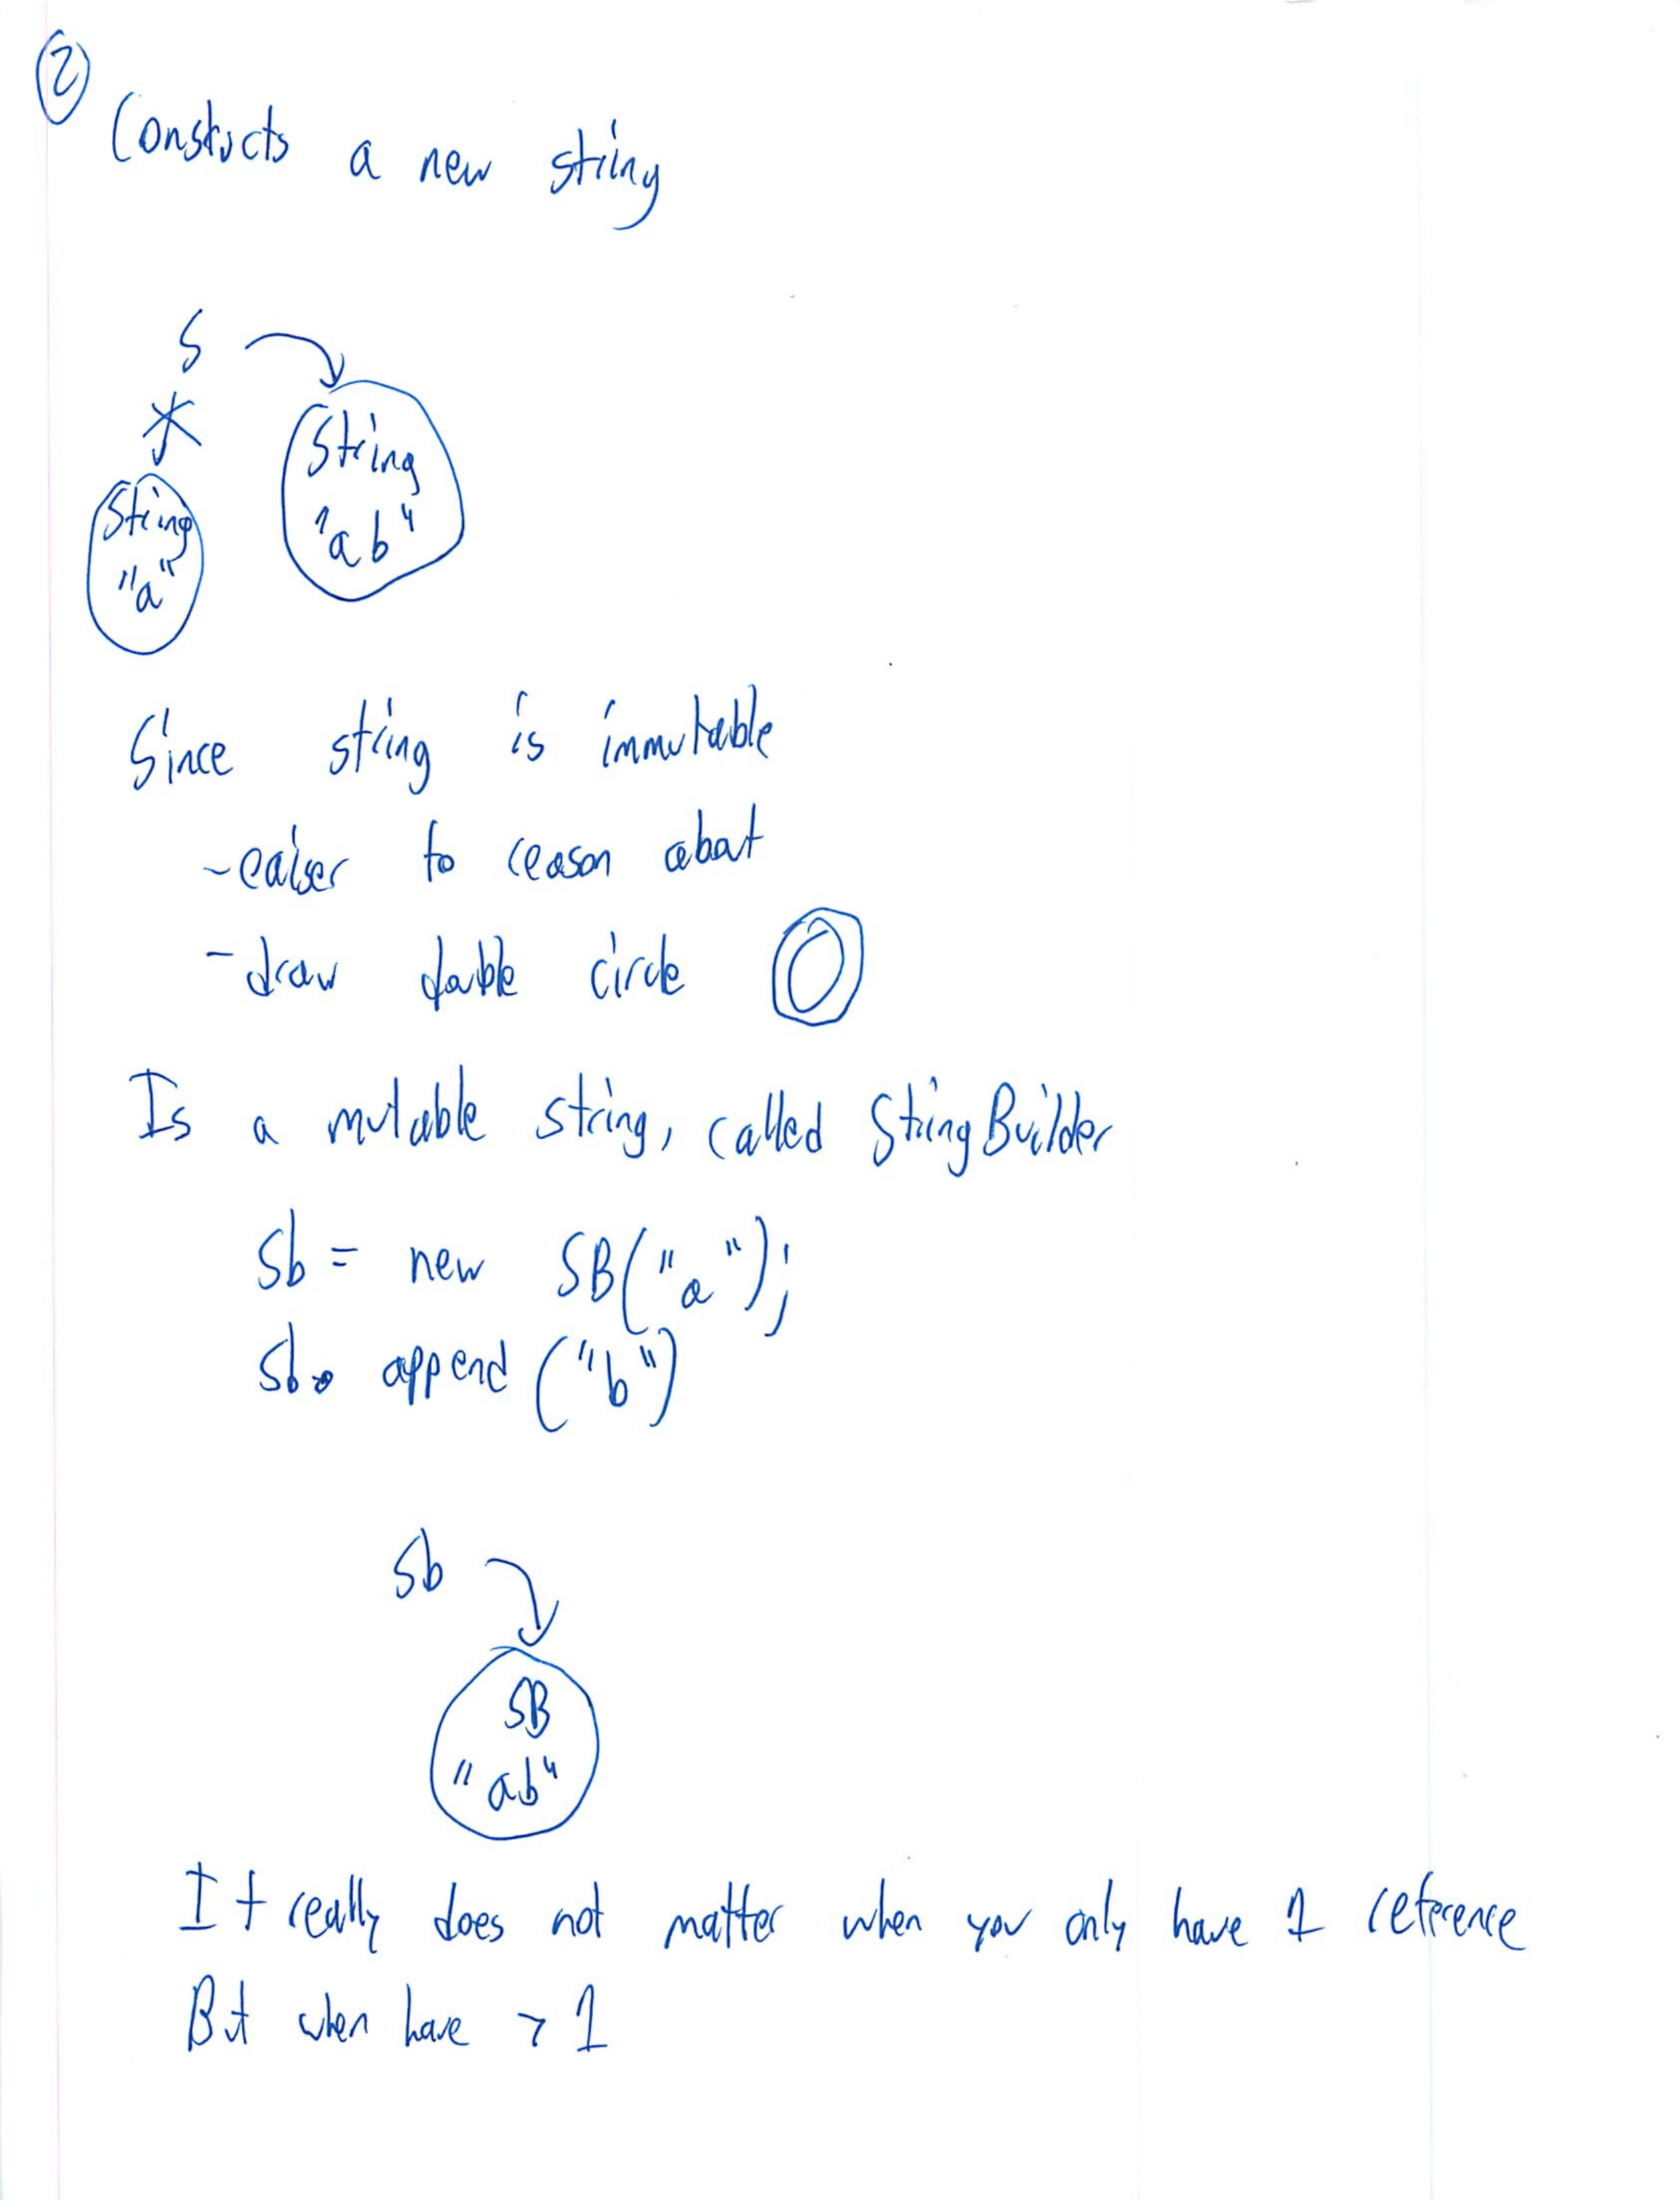 2
Constucts a new string
s
String
"ab"
String
"a"
Since string is immutable
- eaiser to reason about
- draw double circle
Is a mutable string, called StringBuilder
Sb = new SB("a");
Sb. append ("b")
Sb
SB
"ab"
It really does not matter when you only have 1 reference
But when have > 1